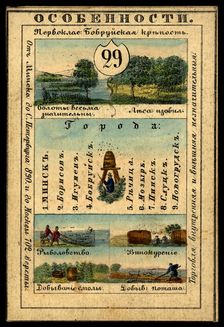 ОСОБЕННОСТИ.
Первоклас: Бобруйская крѣпость.
29
болоты весьма
значительны.
Лѣса изобил.
Города:
1. МИНСКЪ.
2. Борисовъ.
3. Игуменъ.
4. Бобруйскъ.
5. Рѣчица.
6. Мозырь.
7. Пинскъ.
8. Слуцкъ.
9. Новогрудскъ.
Рыболовство.
Винокуреніе.
Добываніе смолы.
Добыв: поташа.
Отъ Минска до С. Петербурга
Торговля внутренняя и внѣшняя незначительная.